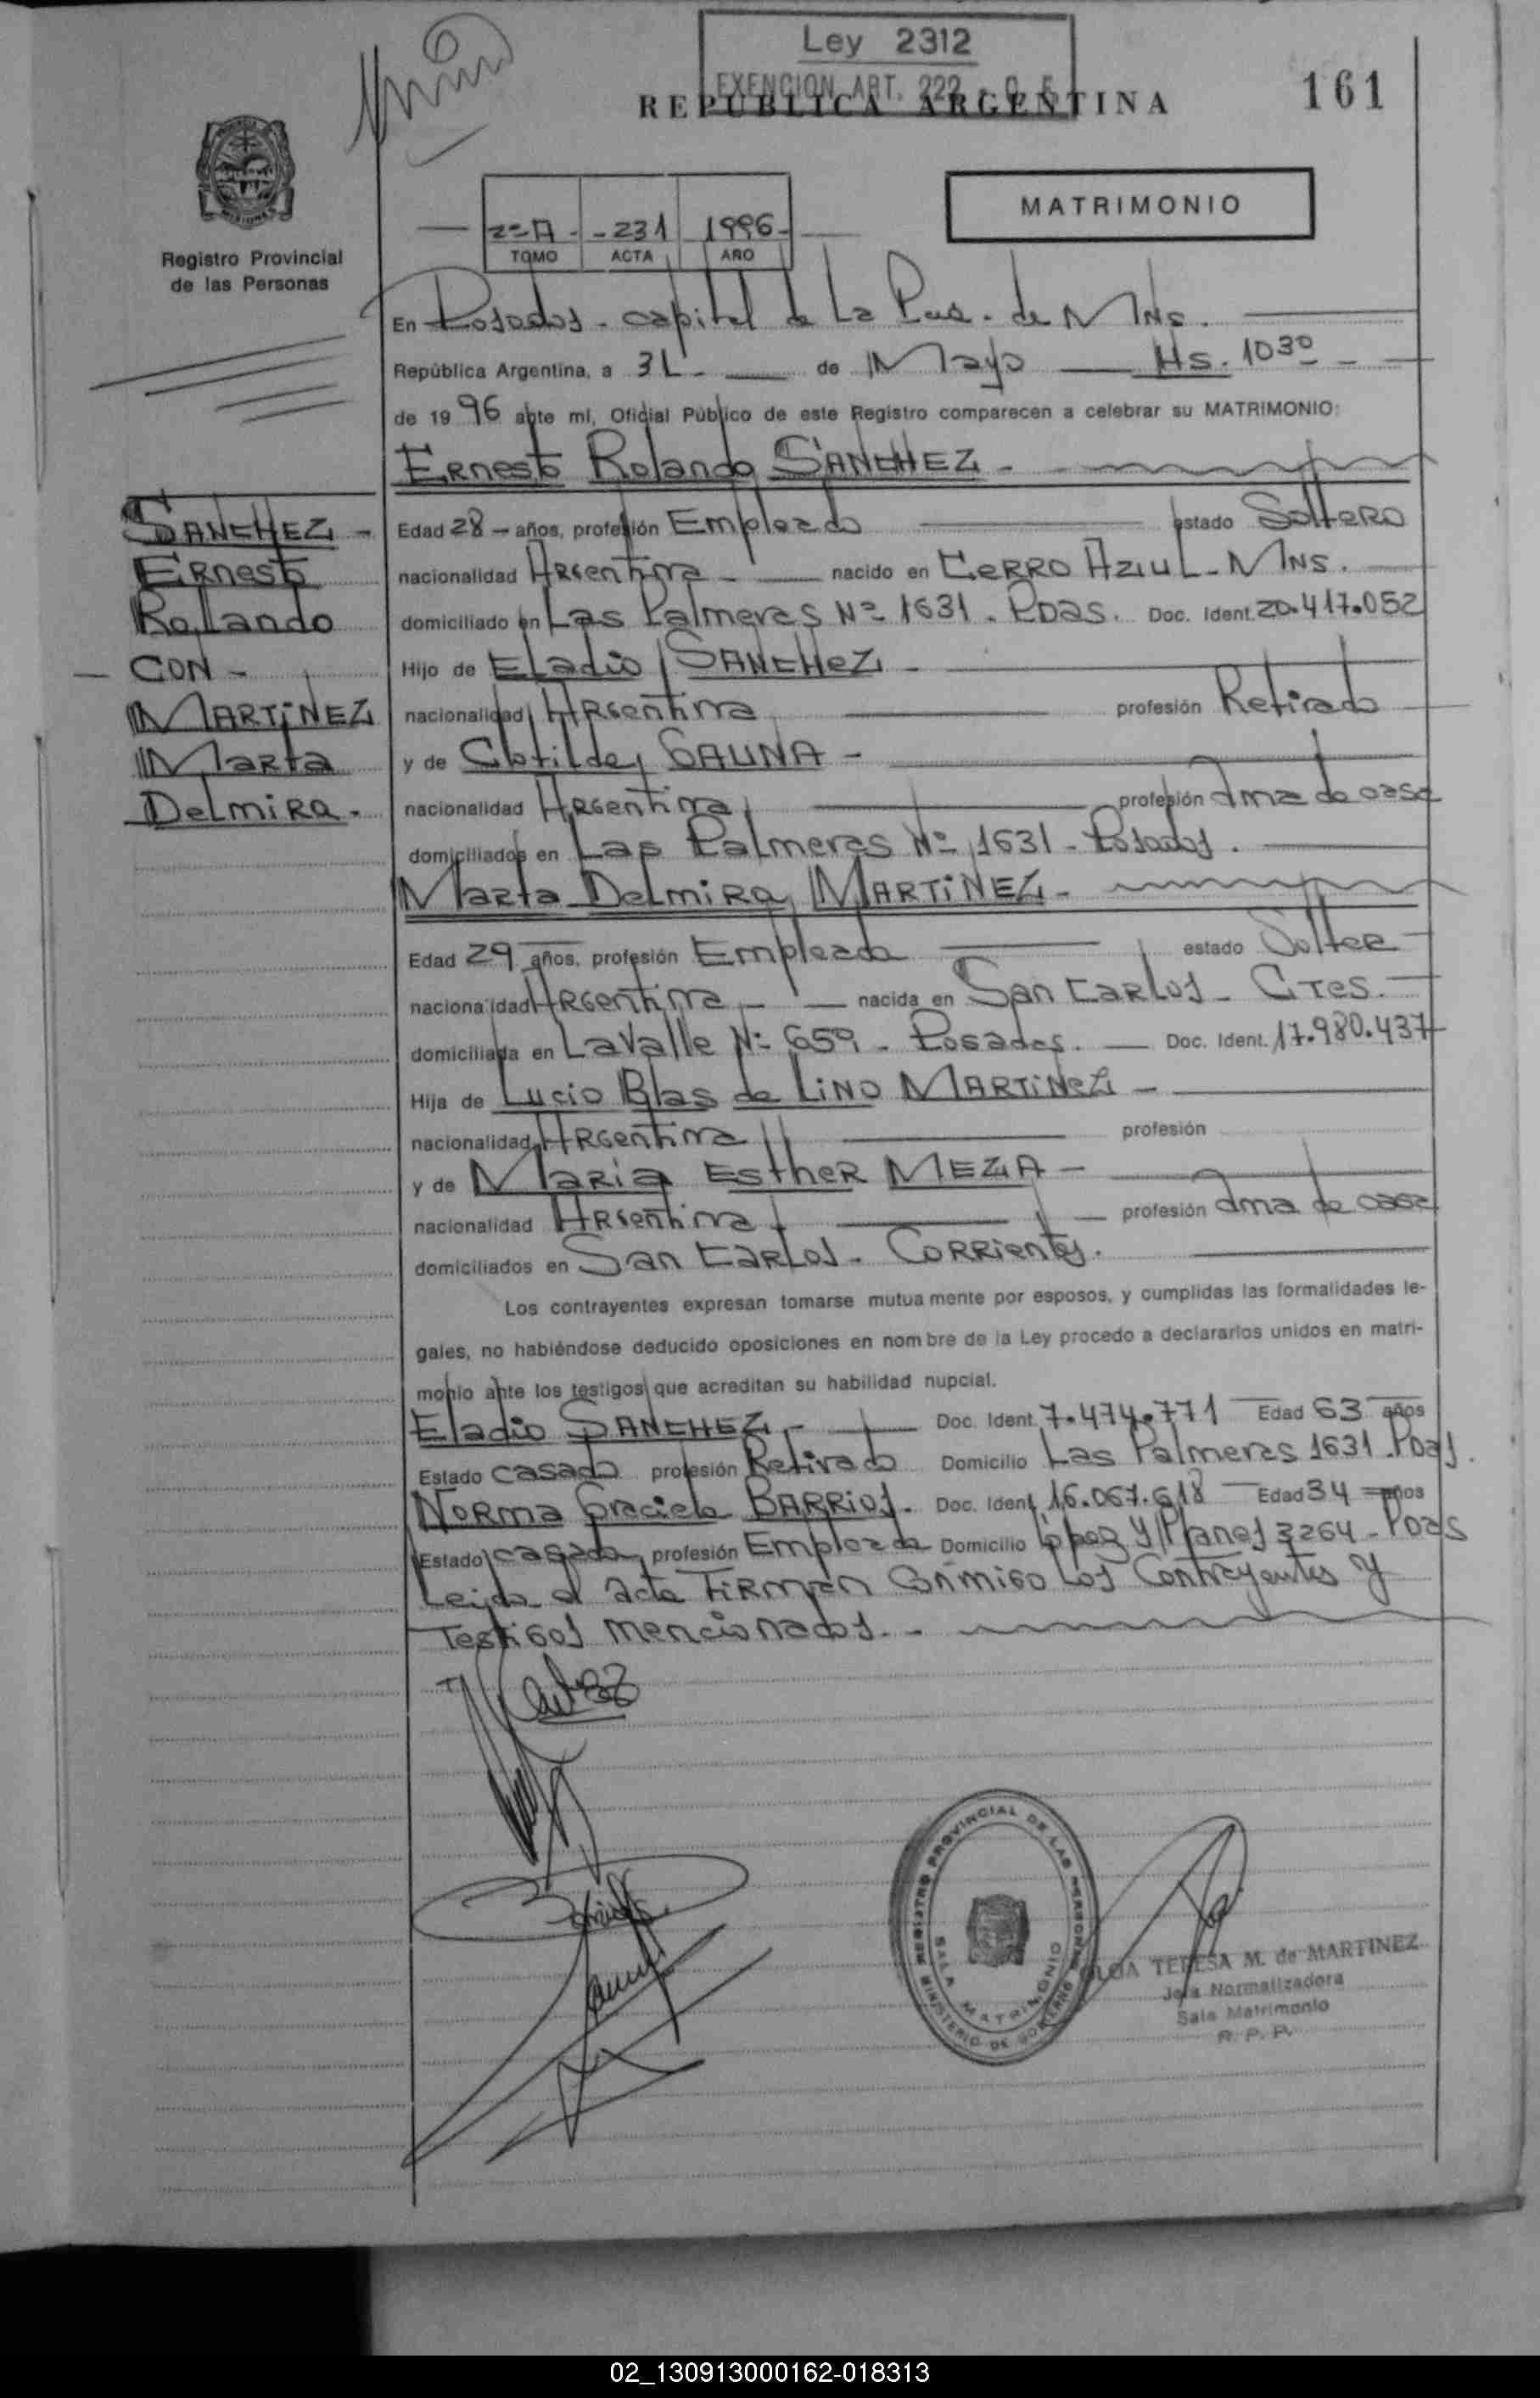 Ley 2312
EXENCION ART. 222
REPUBLICA ARGENTINA
161
Registro Provincial
de las Personas
MATRIMONIO
2=A - - 231 1996-
TOMO ACTA AÑO
En Posadas - capital de La Pcia. de Mns.
República Argentina, a 31 - de Mayo Hs. 1030 -
de 1996 ante mí, Oficial Público de este Registro comparecen a celebrar su MATRIMONIO:
Ernesto Rolando SANCHEZ -
SANCHEZ -
Ernesto
Rolando
- CON -
MARTiNEZ
Marta
Delmira -
Edad 28 - años, profesión Empleado estado Soltero
nacionalidad Argentina - nacido en CERRO AZUL - Mns.
domiciliado en Las Palmeras Nº 1631 - Pdas. Doc. Ident. 20.417.052
Hijo de Eladio SANCHEZ -
nacionalidad Argentina profesión Retirado
y de Clotilde GAUNA -
nacionalidad Argentina profesión Ama de casa
domiciliados en Las Palmeras Nº 1631 - Posadas.
Marta Delmira MARTiNEZ -
Edad 29 años, profesión Empleada estado Solter
nacionalidad Argentina - nacida en San Carlos - Ctes. -
domiciliada en Lavalle Nº 659 - Posadas. - Doc. Ident. 17.980.437
Hija de Lucio Blas de Lino MARTiNEZ -
nacionalidad Argentina profesión
y de Maria Esther MEZA -
nacionalidad Argentina profesión Ama de casa
domiciliados en San Carlos - Corrientes.
Los contrayentes expresan tomarse mutuamente por esposos, y cumplidas las formalidades le-
gales, no habiéndose deducido oposiciones en nombre de la Ley procedo a declararlos unidos en matri-
monio ante los testigos que acreditan su habilidad nupcial.
Eladio SANCHEZ - Doc. Ident. 7.474.771 Edad 63 años
Estado casado profesión Retirado Domicilio Las Palmeras 1631 - Pdas.
Norma Graciela BARRIOS. Doc. Ident. 16.067.618 Edad 34 años
Estado casada profesión Empleada Domicilio López y Planes 3264 - Pdas
Leida el acta Firman conmigo los Contrayentes y
Testigos mencionados. -
REGISTRO PROVINCIAL DE LAS PERSONAS
MINISTERIO DE GOBIERNO
SALA MATRIMONIO
TERESA M. de MARTINEZ
Jefa Normalizadora
Sala Matrimonio
R. P. P.
02_130913000162-018313